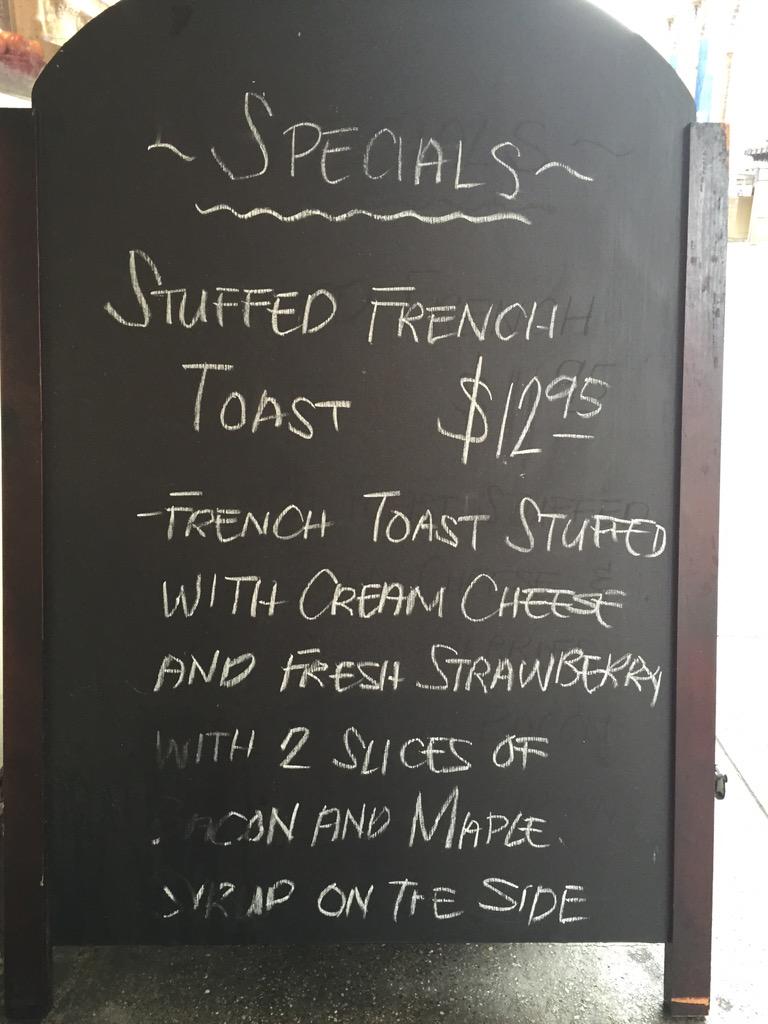 ~ SPECIALS ~
STUFFED FRENCH
TOAST $12.95
-FRENCH TOAST STUFFED
WITH CREAM CHEESE
AND FRESH STRAWBERRY
WITH 2 SLICES OF
BACON AND MAPLE
SYRUP ON THE SIDE